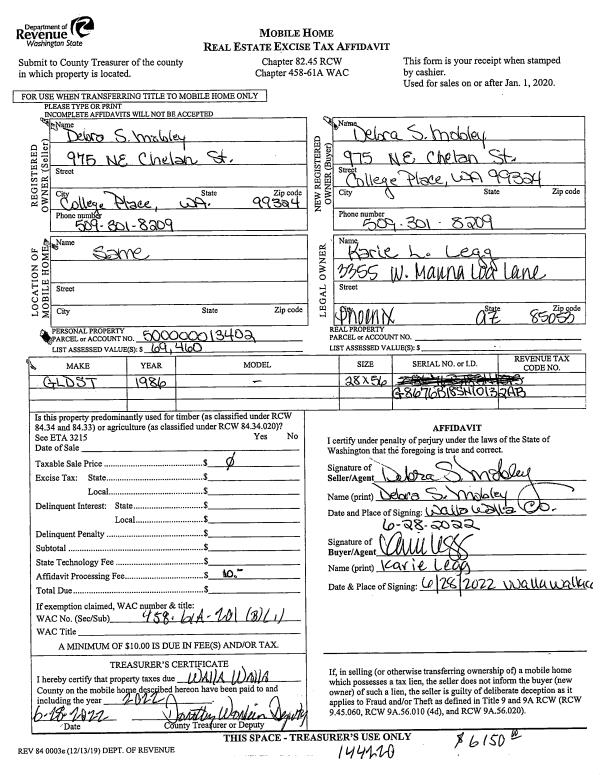 Department of
Revenue
Washington State
MOBILE HOME
REAL ESTATE EXCISE TAX AFFIDAVIT
Submit to County Treasurer of the county
in which property is located.
Chapter 82.45 RCW
Chapter 458-61A WAC
This form is your receipt when stamped
by cashier.
Used for sales on or after Jan. 1, 2020.
FOR USE WHEN TRANSFERRING TITLE TO MOBILE HOME ONLY
PLEASE TYPE OR PRINT
INCOMPLETE AFFIDAVITS WILL NOT BE ACCEPTED
REGISTERED OWNER (Seller)
Name
Debra S. Mobley
975 NE Chelan St.
Street
City State Zip code
College Place, WA. 99324
Phone number
509-301-8209
NEW REGISTERED OWNER (Buyer)
Name
Debra S. Mobley
975 NE Chelan St.
Street
College Place, WA 99324
City State Zip code
Phone number
509-301-8209
LOCATION OF MOBILE HOME
Name
Same
Street
City State Zip code
LEGAL OWNER
Name
Karie L. Legg
3355 W. Mauna Loa Lane
Street
City State Zip code
Phoenix AZ 85053
PERSONAL PROPERTY
PARCEL or ACCOUNT NO. 500000013402
LIST ASSESSED VALUE(S): $ 69,460
REAL PROPERTY
PARCEL or ACCOUNT NO.
LIST ASSESSED VALUE(S): $
MAKE YEAR MODEL SIZE SERIAL NO. or I.D. REVENUE TAX CODE NO.
GLDST 1986 - 28X56
Is this property predominantly used for timber (as classified under RCW
84.34 and 84.33) or agriculture (as classified under RCW 84.34.020)?
See ETA 3215 Yes No
Date of Sale
Taxable Sale Price $ 0
Excise Tax: State $
Local $
Delinquent Interest: State $
Local $
Delinquent Penalty $
Subtotal $
State Technology Fee $
Affidavit Processing Fee $ 10.-
Total Due $
If exemption claimed, WAC number & title:
WAC No. (Sec/Sub) 458-61A-201 (B)(1)
WAC Title
A MINIMUM OF $10.00 IS DUE IN FEE(S) AND/OR TAX.
AFFIDAVIT
I certify under penalty of perjury under the laws of the State of
Washington that the foregoing is true and correct.
Signature of
Seller/Agent Debra S. Mobley
Name (print) Debra S. Mobley
Date and Place of Signing: Walla Walla Co.
6-28-2022
Signature of
Buyer/Agent
Name (print) Karie Legg
Date & Place of Signing: 6/28/2022 Walla Walla
TREASURER'S CERTIFICATE
I hereby certify that property taxes due Walla Walla
County on the mobile home described hereon have been paid to and
including the year 2022
6-28-2022 Deputy
Date County Treasurer or Deputy
If, in selling (or otherwise transferring ownership of) a mobile home
which possesses a tax lien, the seller does not inform the buyer (new
owner) of such a lien, the seller is guilty of deliberate deception as it
applies to Fraud and/or Theft as defined in Title 9 and 9A RCW (RCW
9.45.060, RCW 9A.56.010 (4d), and RCW 9A.56.020).
REV 84 0003e (12/13/19) DEPT. OF REVENUE
THIS SPACE - TREASURER'S USE ONLY
144220
$ 6150